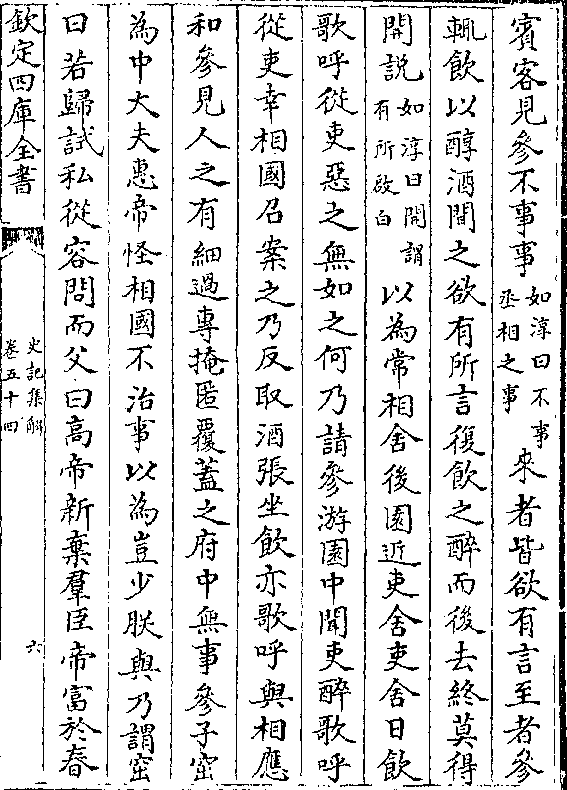 賓客見參不事事如淳曰不事丞相之事來者皆欲有言至者參
輒飲以醇酒間之欲有所言復飲之醉而後去終莫得
開説如淳曰開謂有所啟白以為常相舍後園近吏舍吏舍日飲
歌呼從吏惡之無如之何乃請參游園中聞吏醉歌呼
從吏幸相國召案之乃反取酒張坐飲亦歌呼與相應
和參見人之有細過專掩匿覆蓋之府中無事參子窋
為中大夫惠帝怪相國不治事以為豈少朕與乃謂窋
曰若歸試私從容問而父曰高帝新棄羣臣帝富於春
欽定四庫全書
史記集解
卷五十四
六